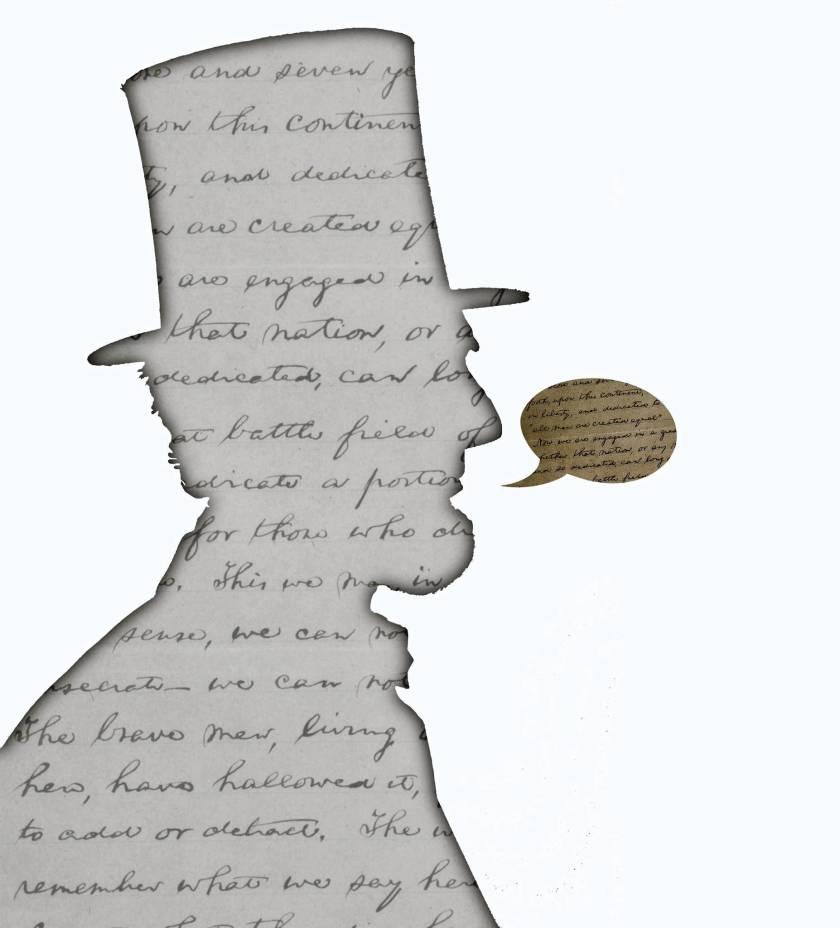 and seven ye
pow this continen
ty, and dedicate
are created equ
are engaged in
that nation, or a
dedicated, can long
at battle field of
dicate a portion
for those who di
This we may, in
sense, we can not
nsecrate — we can not
The brave men, living
here, have hallowed it,
to add or detract. The w
remember what we say here
forth, upon this continent,
in liberty, and dedicated to
"all men are created equal"
Now we are engaged in a grea
hether that nation, or any
and so dedicated, can long
battle field